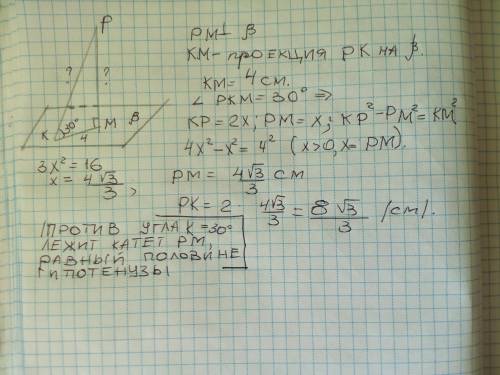 P
? ?
K 30° M β
4
PM ⊥ β
KM – проекция PK на β.
KM = 4 см.
∠ PKM = 30° ⇒
KP = 2x; PM = x; KP² – PM² = KM²
4x² – x² = 4² (x > 0, x = PM).
3x² = 16
x = 4√3/3,
PM = 4√3/3 см
PK = 2 · 4√3/3 = 8√3/3 (см).
ПРОТИВ УГЛА K = 30°
ЛЕЖИТ КАТЕТ PM,
РАВНЫЙ ПОЛОВИНЕ
ГИПОТЕНУЗЫ